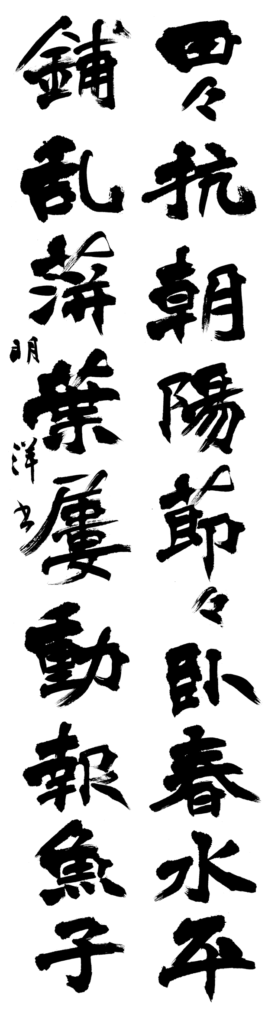 田々抗朝陽莭々卧春水平
鋪乱蓱葉屢動報魚子
明洋書